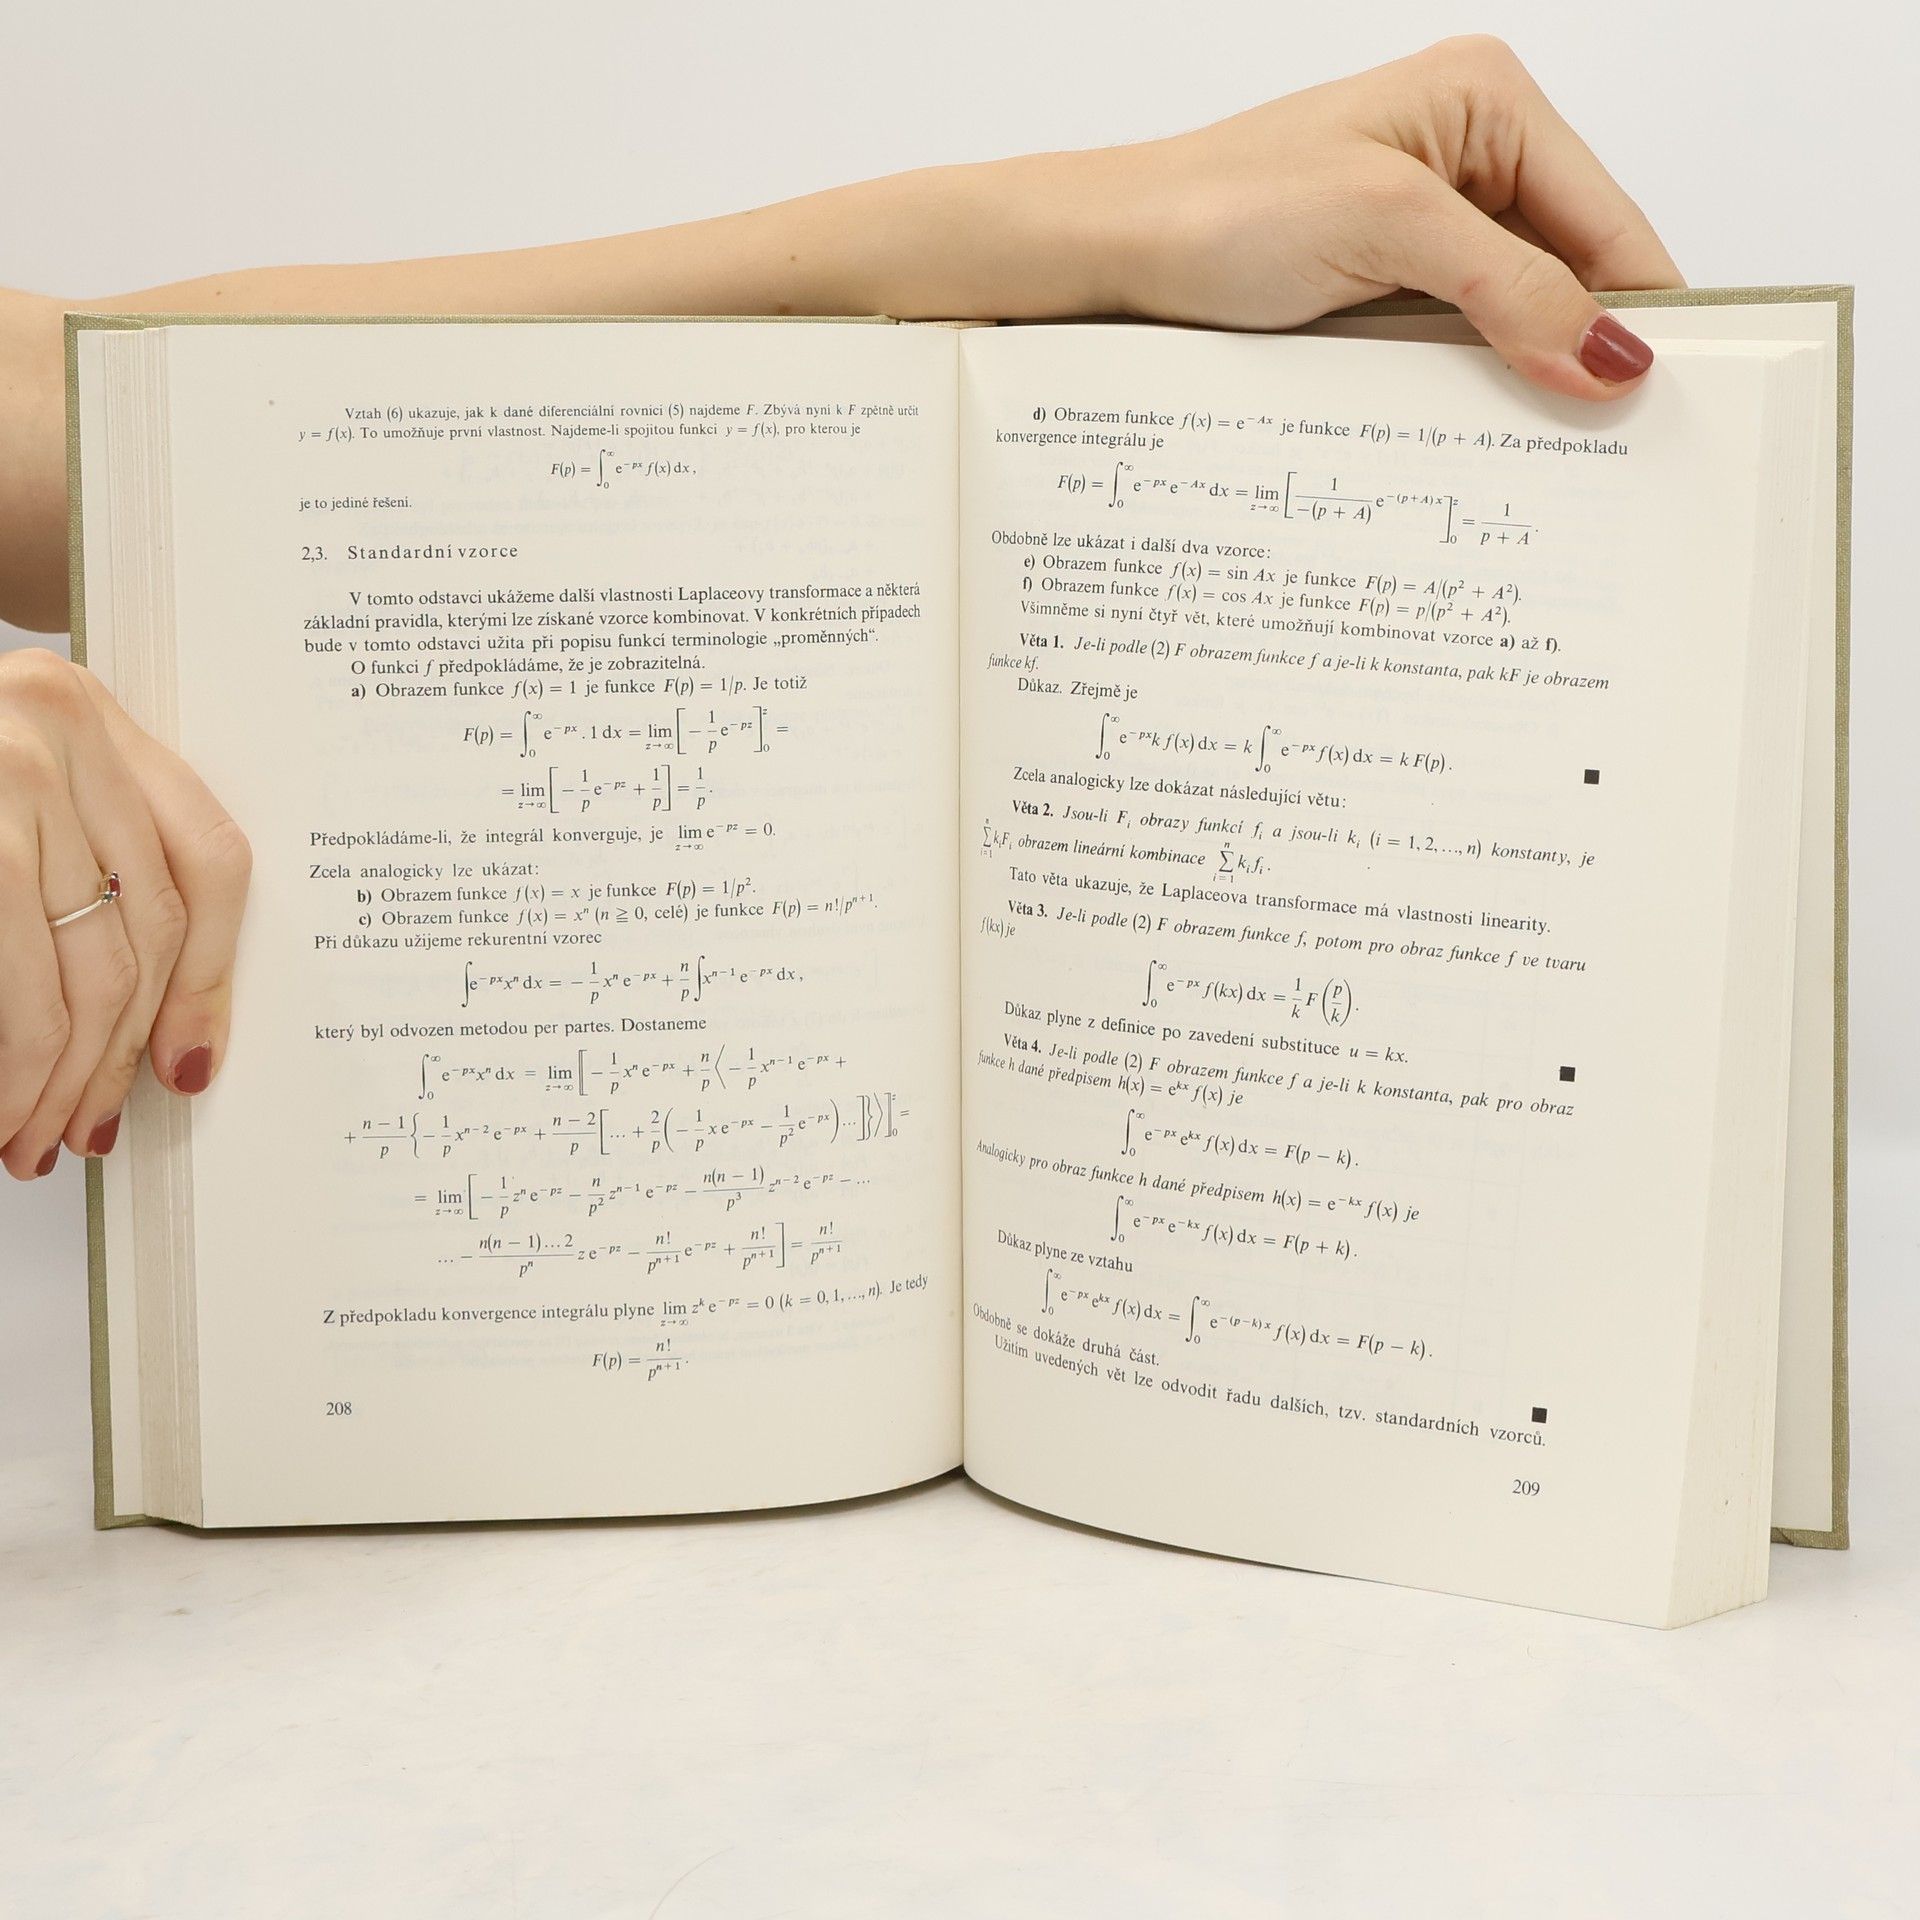 Vztah (6) ukazuje, jak k dané diferenciální rovnici (5) najdeme F. Zbývá nyní k F zpětně určit
y = f(x). To umožňuje první vlastnost. Najdeme-li spojitou funkci y = f(x), pro kterou je
F(p) = ∫₀^∞ e^{−px} f(x) dx,
je to jediné řešení.
2,3. Standardní vzorce
V tomto odstavci ukážeme další vlastnosti Laplaceovy transformace a některá
základní pravidla, kterými lze získané vzorce kombinovat. V konkrétních případech
bude v tomto odstavci užita při popisu funkcí terminologie „proměnných“.
O funkci f předpokládáme, že je zobrazitelná.
a) Obrazem funkce f(x) = 1 je funkce F(p) = 1/p. Je totiž
F(p) = ∫₀^∞ e^{−px} . 1 dx = lim_{z→∞} [−1/p e^{−pz}]₀^z =
= lim_{z→∞} [−1/p e^{−pz} + 1/p] = 1/p.
Předpokládáme-li, že integrál konverguje, je lim_{z→∞} e^{−pz} = 0.
Zcela analogicky lze ukázat:
b) Obrazem funkce f(x) = x je funkce F(p) = 1/p².
c) Obrazem funkce f(x) = xⁿ (n ≧ 0, celé) je funkce F(p) = n!/p^{n+1}.
Při důkazu užijeme rekurentní vzorec
∫e^{−px}xⁿ dx = −1/p xⁿ e^{−px} + n/p ∫x^{n−1} e^{−px} dx,
který byl odvozen metodou per partes. Dostaneme
∫₀^∞ e^{−px}xⁿ dx = lim_{z→∞} [−1/p xⁿ e^{−px} + n/p ⟨−1/p x^{n−1} e^{−px} +
+ (n − 1)/p {−1/p x^{n−2} e^{−px} + (n − 2)/p [... + 2/p (−1/p x e^{−px} − 1/p² e^{−px}) ...]}⟩]₀^z =
= lim_{z→∞} [−1/p zⁿ e^{−pz} − n/p² z^{n−1} e^{−pz} − n(n − 1)/p³ z^{n−2} e^{−pz} − ...
... − n(n − 1)...2/pⁿ z e^{−pz} − n!/p^{n+1} e^{−pz} + n!/p^{n+1}] = n!/p^{n+1}
Z předpokladu konvergence integrálu plyne lim_{z→∞} z^k e^{−pz} = 0 (k = 0, 1, ..., n). Je tedy
F(p) = n!/p^{n+1}.
208
d) Obrazem funkce f(x) = e^{−Ax} je funkce F(p) = 1/(p + A). Za předpokladu
konvergence integrálu je
F(p) = ∫₀^∞ e^{−px} e^{−Ax} dx = lim_{z→∞} [1/−(p + A) e^{−(p+A)x}]₀^z = 1/(p + A).
Obdobně lze ukázat i další dva vzorce:
e) Obrazem funkce f(x) = sin Ax je funkce F(p) = A/(p² + A²).
f) Obrazem funkce f(x) = cos Ax je funkce F(p) = p/(p² + A²).
Všimněme si nyní čtyř vět, které umožňují kombinovat vzorce a) až f).
Věta 1. Je-li podle (2) F obrazem funkce f a je-li k konstanta, pak kF je obrazem
funkce kf.
Důkaz. Zřejmě je
∫₀^∞ e^{−px}k f(x) dx = k ∫₀^∞ e^{−px} f(x) dx = k F(p). ■
Zcela analogicky lze dokázat následující větu:
Věta 2. Jsou-li F_i obrazy funkcí f_i a jsou-li k_i (i = 1, 2, ..., n) konstanty, je
∑_{i=1}^n k_iF_i obrazem lineární kombinace ∑_{i=1}^n k_i f_i.
Tato věta ukazuje, že Laplaceova transformace má vlastnosti linearity.
Věta 3. Je-li podle (2) F obrazem funkce f, potom pro obraz funkce f ve tvaru
f(kx) je
∫₀^∞ e^{−px} f(kx) dx = 1/k F(p/k).
Důkaz plyne z definice po zavedení substituce u = kx. ■
Věta 4. Je-li podle (2) F obrazem funkce f a je-li k konstanta, pak pro obraz
funkce h dané předpisem h(x) = e^{kx} f(x) je
∫₀^∞ e^{−px} e^{kx} f(x) dx = F(p − k).
Analogicky pro obraz funkce h dané předpisem h(x) = e^{−kx} f(x) je
∫₀^∞ e^{−px} e^{−kx} f(x) dx = F(p + k).
Důkaz plyne ze vztahu
∫₀^∞ e^{−px} e^{kx} f(x) dx = ∫₀^∞ e^{−(p−k)x} f(x) dx = F(p − k).
Obdobně se dokáže druhá část. ■
Užitím uvedených vět lze odvodit řadu dalších, tzv. standardních vzorců.
209